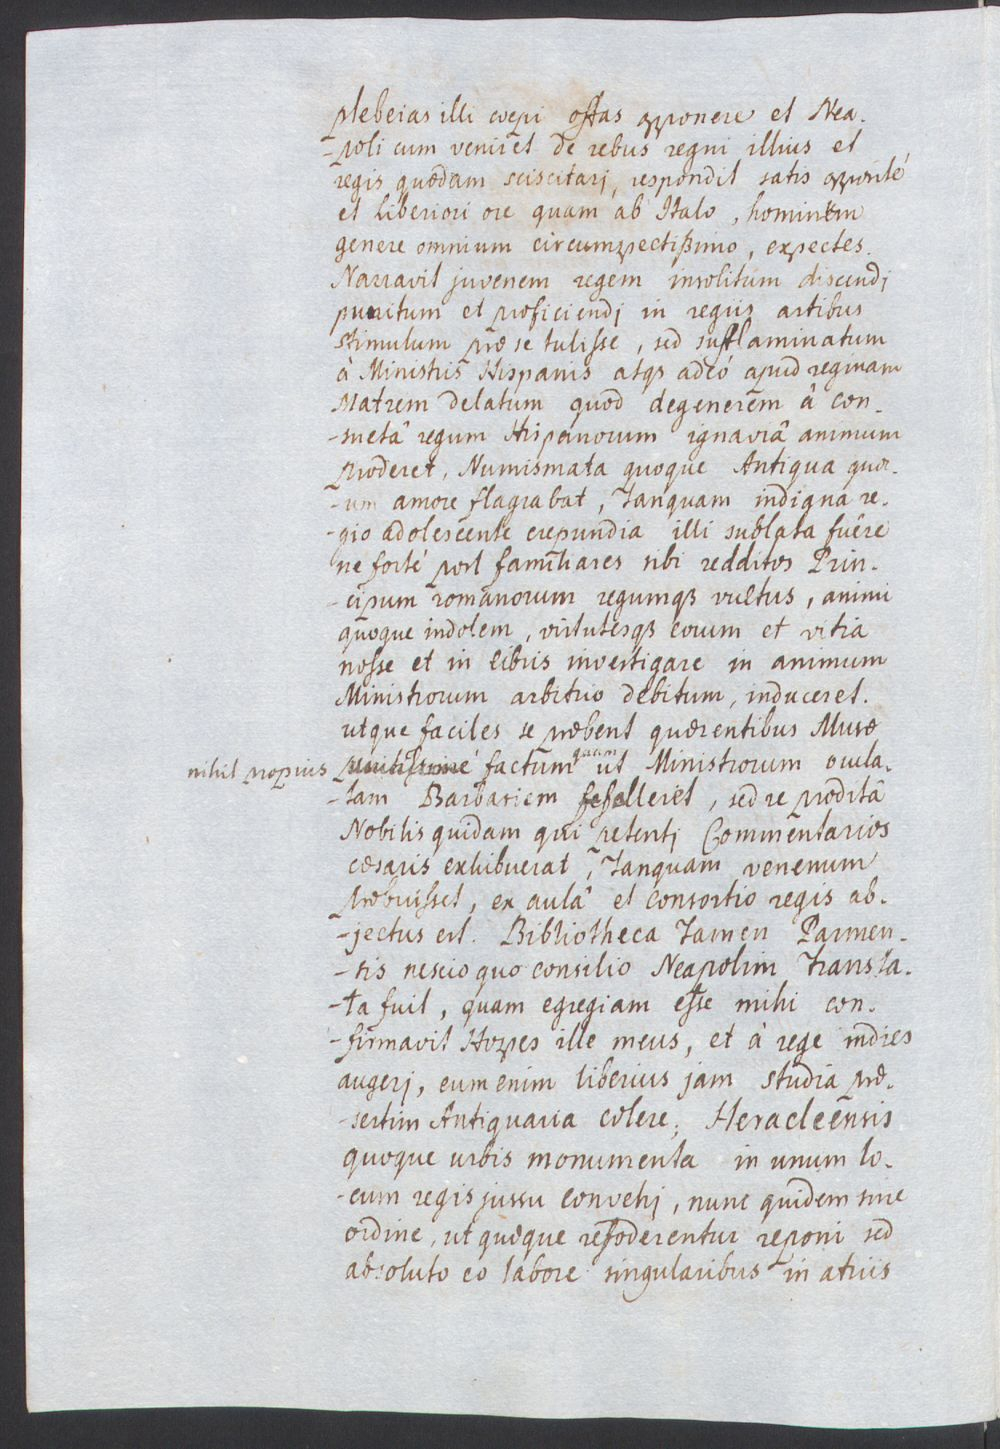 plebeias illi cœpi offas opponere et Nea-
-poli cum veniret de rebus regni illius et
regis quædam sciscitari, respondit satis apposité
et liberiori ore quam ab Italo, hominum
genere omnium circumspectißimo, expectes.
Narravit juvenem regem insolitum discendj
pruritum et proficiendj in regiis artibus
stimulum præ se tulisse, sed sufflaminatum
à Ministris Hispanis atqȝ adeó apud reginam
Matrem delatum quod degenerem â con-
-suetâ regum Hispanorum ignaviâ animum
proderet, Numismata quoque Antiqua quor-
-um amore flagrabat, tanquam indigna re-
-gio adolescente crepundia illi sublata fuêre
ne forté post familiares sibi redditos Prin-
-cipum romanorum regumqȝ vultus, animi
quoque indolem, virtutesqȝ eorum et vitia
nosse et in libris investigare in animum
Ministrorum arbitrio debitum, induceret.
utque faciles se præbent quærentibus Musæ
nihil propius factum quam ut Ministrorum ocula-
-tam Barbariem fefelleret, sed re proditâ
Nobilis quidam qui petentj Commentarios
cæsaris exhibuerat, tanquam venenum
præbuisset, ex aulâ et consortio regis ab-
-jectus est. Bibliotheca tamen Parmen-
-sis nescio quo consilio Neapolim transla-
-ta fuit, quam egregiam esse mihi con-
-firmavit Hospes ille meus, et à rege indies
augerj, eum enim liberius jam studia præ-
-sertim Antiquaria colere; Heracleensis
quoque urbis monumenta in unum lo-
-cum regis jussu convehj, nunc quidem sine
ordine, ut quæque refoderentur reponi sed
absoluto eo labore singularibus in atriis